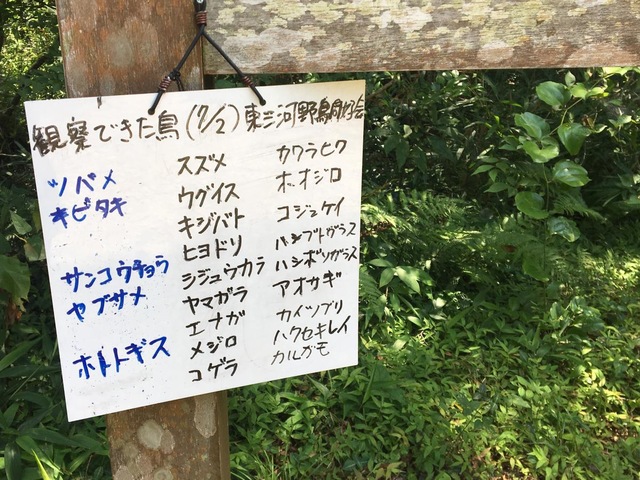 観察できた鳥(7/2)東三河野鳥同好会
ツバメ
キビタキ
サンコウチョウ
ヤブサメ
ホトトギス
スズメ
ウグイス
キジバト
ヒヨドリ
シジュウカラ
ヤマガラ
エナガ
メジロ
コゲラ
カワラヒワ
ホオジロ
コジュケイ
ハシブトガラス
ハシボソガラス
アオサギ
カイツブリ
ハクセキレイ
カルガモ